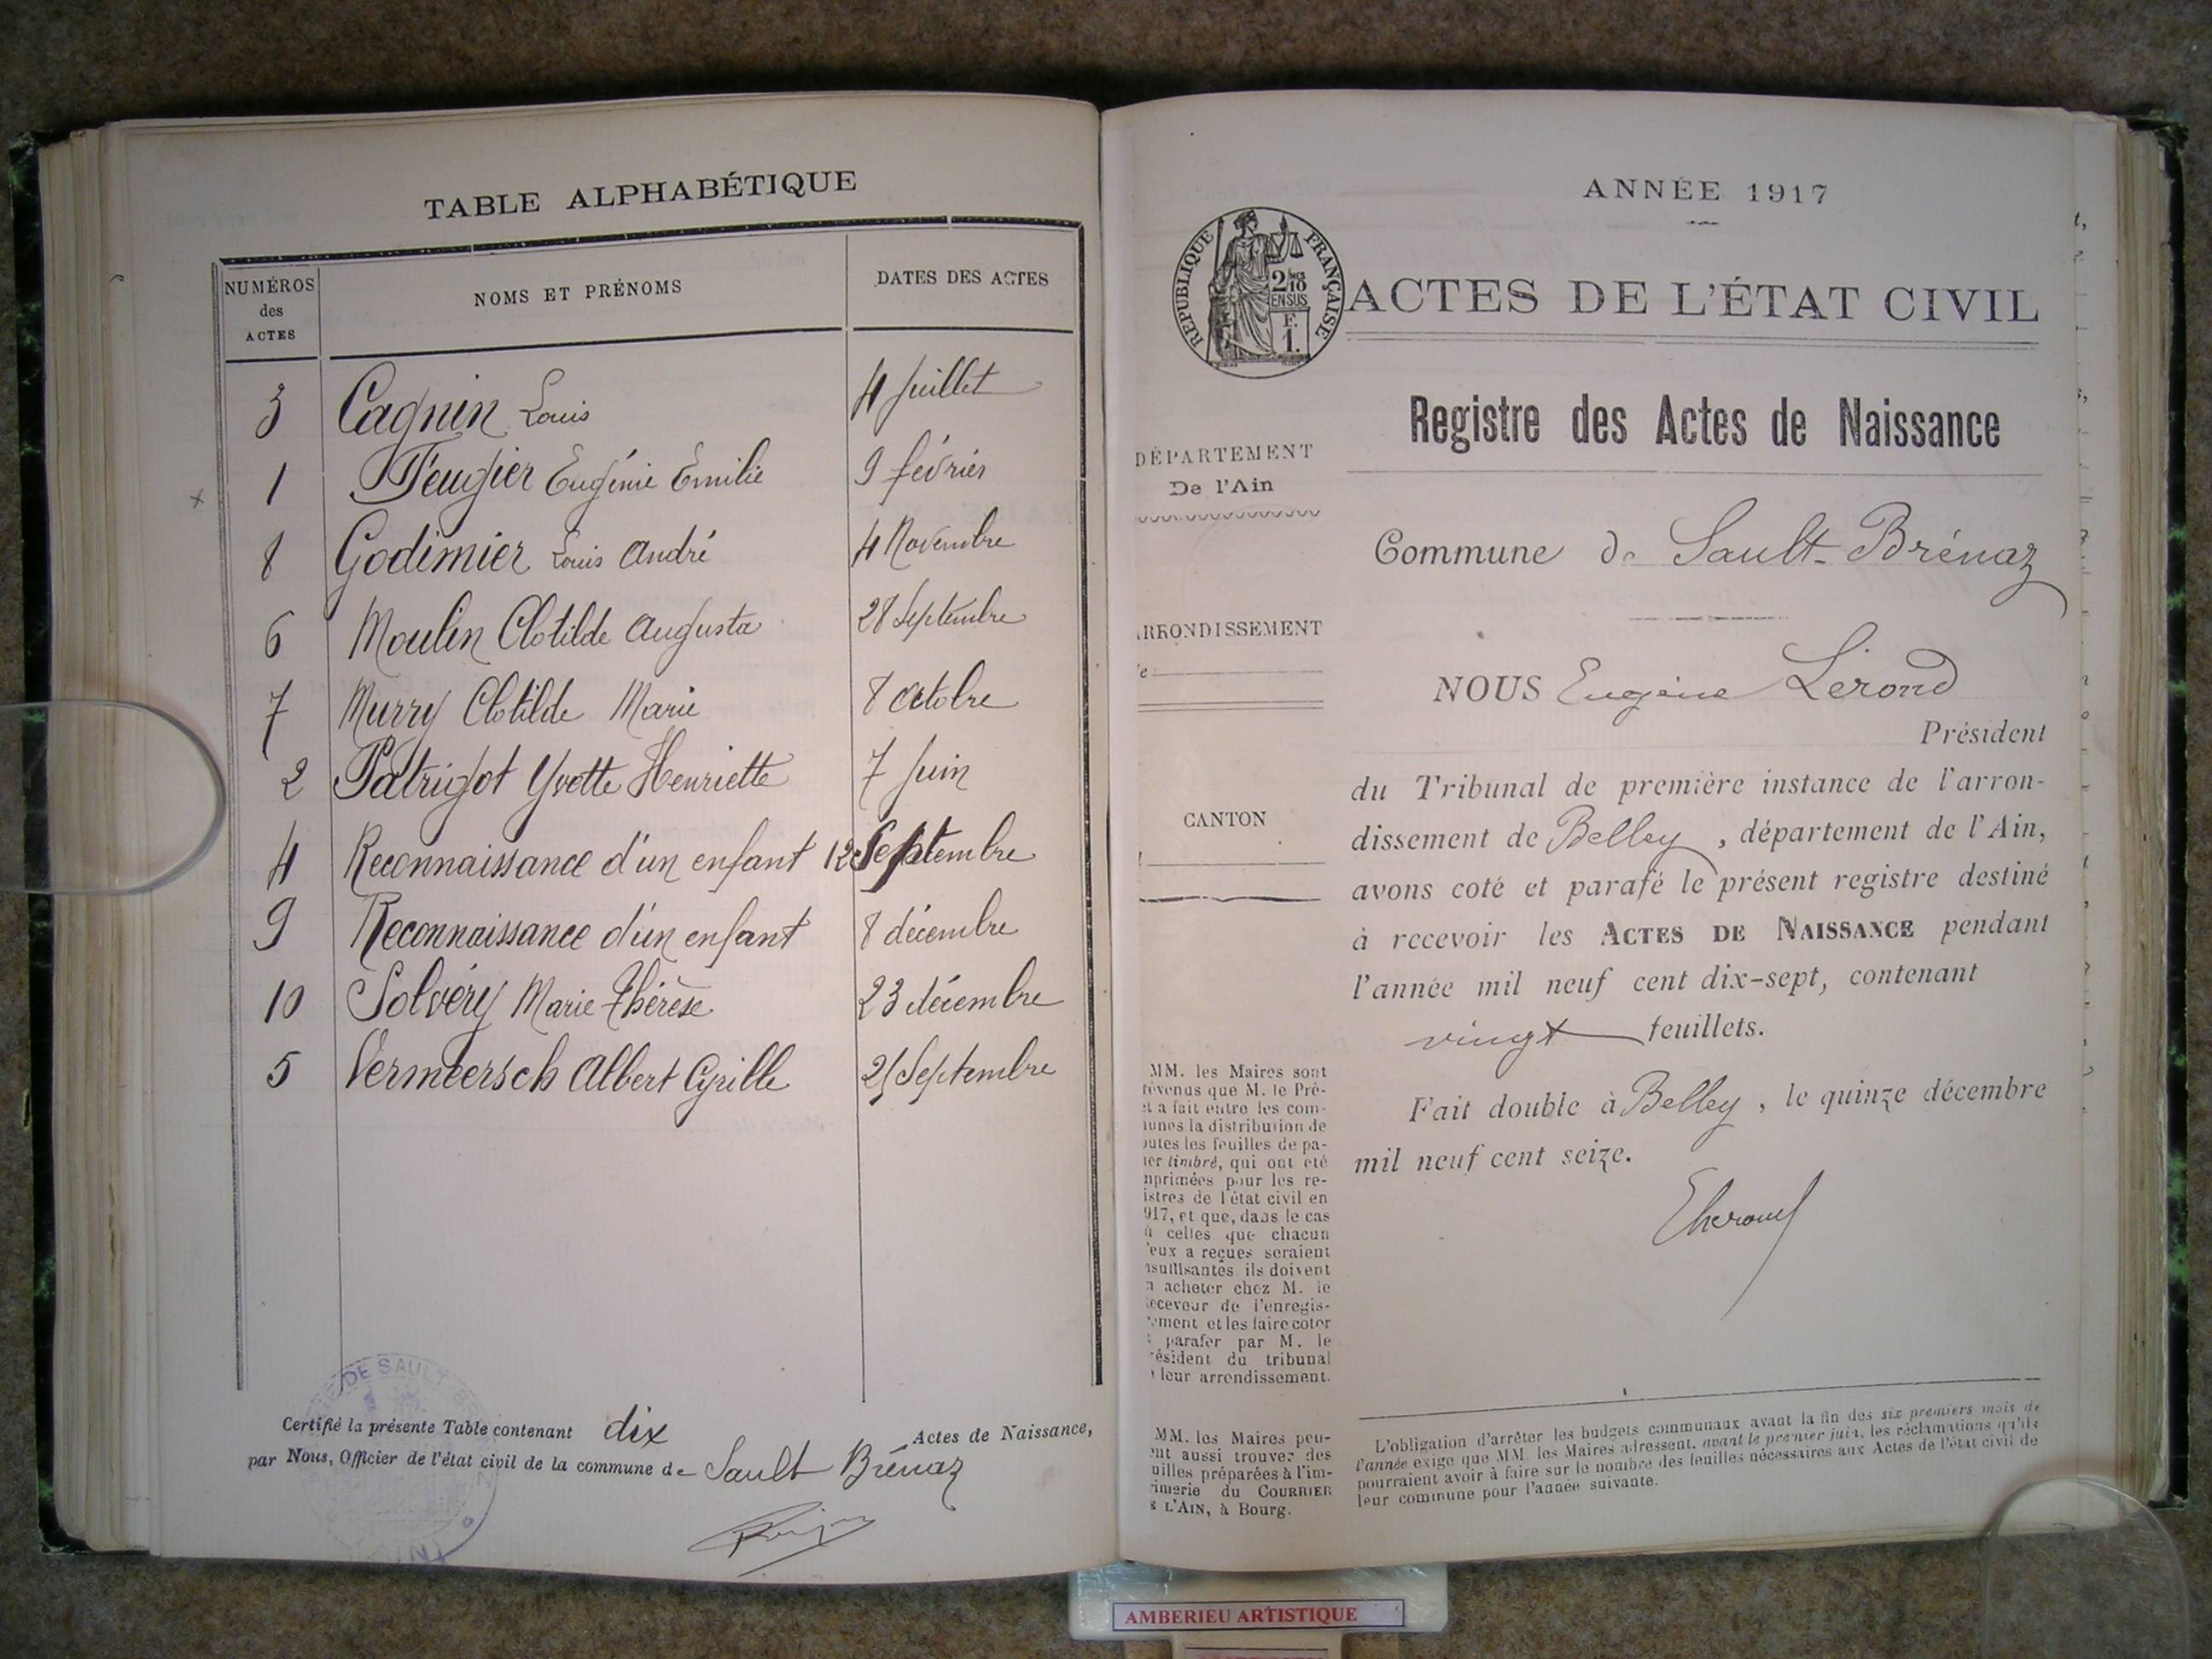 TABLE ALPHABÉTIQUE
NUMÉROS
des
ACTES
NOMS ET PRÉNOMS
DATES DES ACTES
3 Cagnin Louis 4 Juillet
1 Feugier Eugénie Emilie 9 février
8 Godimier Louis André 4 Novembre
6 Moulin Clotilde Augusta 28 Septembre
7 Murry Clotilde Marie 8 Octobre
2 Patrigot Yvette Henriette 7 Juin
4 Reconnaissance d'un enfant 12 Septembre
9 Reconnaissance d'un enfant 8 décembre
10 Solvéry Marie Thérèse 23 décembre
5 Vermeersch Albert Cyrille Septembre
Certifié la présente Table contenant dix Actes de Naissance,
par Nous, Officier de l'état civil de la commune de Sault Brénaz
DE SAULT
ANNÉE 1917
RÉPUBLIQUE FRANÇAISE
2/10
EN SUS
F.
1.
ACTES DE L'ÉTAT CIVIL
Registre des Actes de Naissance
DÉPARTEMENT
De l'Ain
Commune de Sault-Brénaz
ARRONDISSEMENT
CANTON
NOUS Eugène Lerond
Président
du Tribunal de première instance de l'arron-
dissement de Belley, département de l'Ain,
avons coté et parafé le présent registre destiné
à recevoir les ACTES DE NAISSANCE pendant
l'année mil neuf cent dix-sept, contenant
vingt feuillets.
Fait double à Belley, le quinze décembre
mil neuf cent seize.
MM. les Maires sont
révenus que M. le Pré-
et a fait entre les com-
unes la distribution de
outes les feuilles de pa-
ier timbré, qui ont été
mprimées pour les re-
istres de l'état civil en
917, et que, dans le cas
ù celles que chacun
'eux a reçues seraient
nsuffisantes ils doivent
n acheter chez M. le
eceveur de l'enregis-
ement et les faire coter
t parafer par M. le
résident du tribunal
leur arrondissement.
MM. les Maires peu-
ent aussi trouver des
uilles préparées à l'im-
rimerie du COURRIER
E L'AIN, à Bourg.
L'obligation d'arrêter les budgets communaux avant la fin des six premiers mois de
l'année exige que MM. les Maires adressent, avant le premier juin, les réclamations qu'ils
pourraient avoir à faire sur le nombre des feuilles nécessaires aux Actes de l'état civil de
leur commune pour l'année suivante.
AMBERIEU ARTISTIQUE